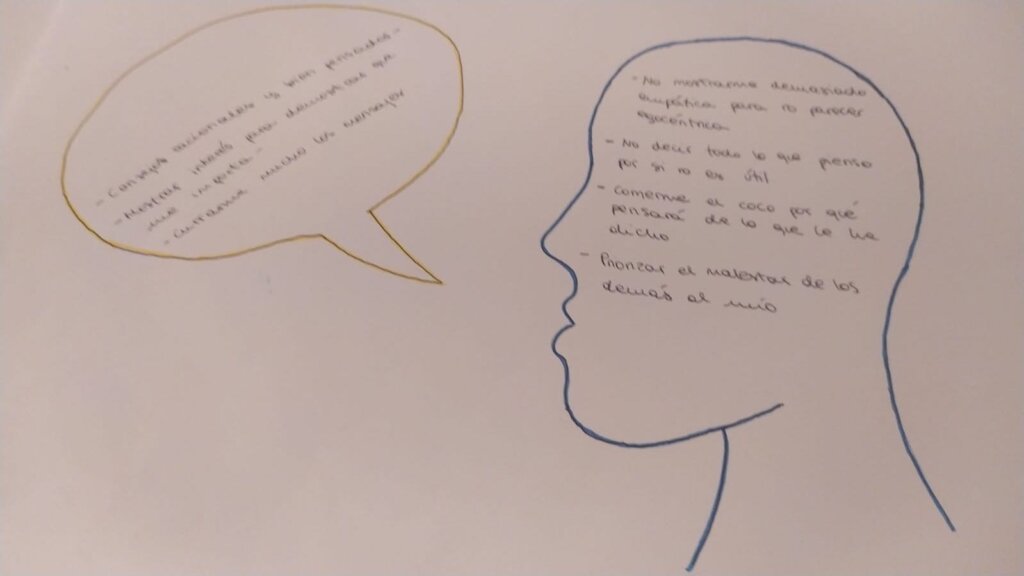 - Consejos racionales y bien pensados -
- Mostrar interés para demostrar que
me importa -
- Currarme mucho los mensajes
- No mostrarme demasiado
empática para no parecer
egocéntrica
- No decir todo lo que pienso
por si no es útil
- Comerme el coco por qué
pensará de lo que le he
dicho
- Priorizar el malestar de los
demás al mío